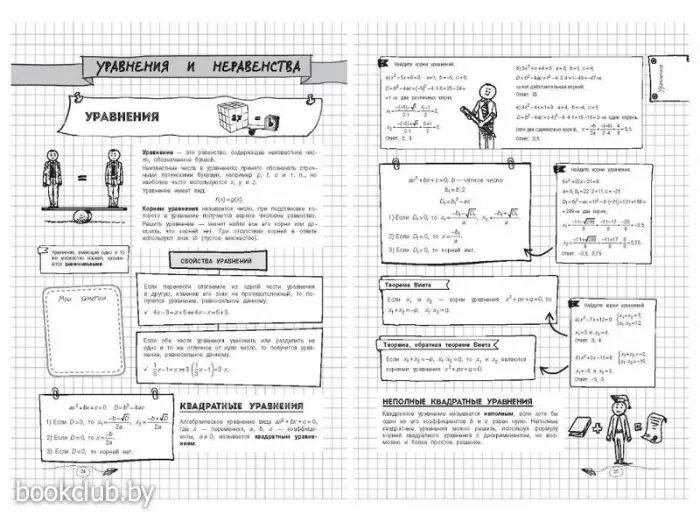 УРАВНЕНИЯ И НЕРАВЕНСТВА
УРАВНЕНИЯ
ax = b
Уравнение — это равенство, содержащее неизвестное чис-
ло, обозначенное буквой.
Неизвестные числа в уравнениях принято обозначать строч-
ными латинскими буквами, например p, t, u и т. п., но
наиболее часто используются x, y и z.
Уравнение имеет вид:
f(x) = g(x).
Корнем уравнения называется число, при подстановке ко-
торого в уравнение получается верное числовое равенство.
Решить уравнение — значит найти все его корни или до-
казать, что корней нет. При отсутствии корней в ответе
используется знак ∅ (пустое множество).
Уравнения, имеющие одно и то
же множество корней, называ-
ются равносильными.
Мои заметки
СВОЙСТВА УРАВНЕНИЙ
Если перенести слагаемое из одной части уравнения
в другую, изменив его знак на противоположный, то по-
лучится уравнение, равносильное данному.
✓ 4x−3=x+5⇔4x−x=5+3.
Если обе части уравнения умножить или разделить на
одно и то же отличное от нуля число, то получится урав-
нение, равносильное данному.
ax²+bx+c=0 D=b²−4ac
1) Если D>0, то x₁=(−b−√D)/2a, x₂=(−b+√D)/2a.
2) Если D=0, то x=−b/2a.
3) Если D<0, то корней нет.
КВАДРАТНЫЕ УРАВНЕНИЯ
Алгебраическое уравнение вида ax²+bx+c=0,
где x — переменная, a, b, c — коэффици-
енты, a≠0, называется квадратным уравне-
нием.
24
Найдите корни уравнений.
а) x²−5x+6=0 a=1, b=−5, c=6,
Ответ: 2; 3.
Ответ: ∅.
Ответ: 0,5.
Уравнения
ax²+bx+c=0, b — чётное число
1) Если D₁>0, то
2) Если D₁=0, то
3) Если D₁<0, то корней нет.
Найдите корни уравнения.
Ответ: −0,5; 5,75.
Теорема Виета
Если x₁ и x₂ — корни уравнения x²+px+q=0, то
x₁+x₂=−p, x₁·x₂=q.
Теорема, обратная теореме Виета
Если x₁+x₂=−p, x₁·x₂=q, то x₁ и x₂ являются
корнями уравнения x²+px+q=0.
Найдите корни уравнений.
а) x²−7x+12=0
x₁=3 и x₂=4.
Ответ: 3; 4.
б) x²+2x−15=0
x₁=−5 и x₂=3.
Ответ: −5; 3.
НЕПОЛНЫЕ КВАДРАТНЫЕ УРАВНЕНИЯ
Квадратное уравнение называется неполным, если хотя бы
один из его коэффициентов b и c равен нулю. Неполные
квадратные уравнения можно решить, используя формулу
корней квадратного уравнения с дискриминантом, но воз-
можно и более простое решение.
25
bookclub.by